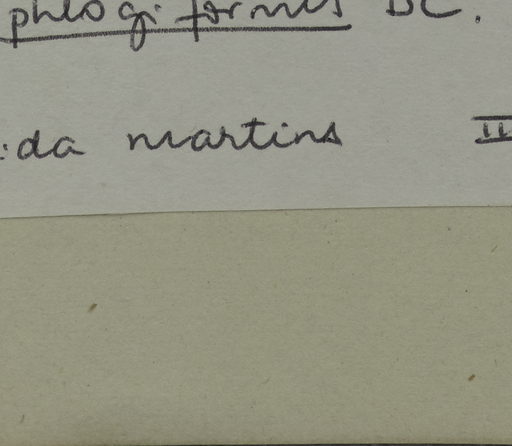 phlogiformis DC.
:da martins II